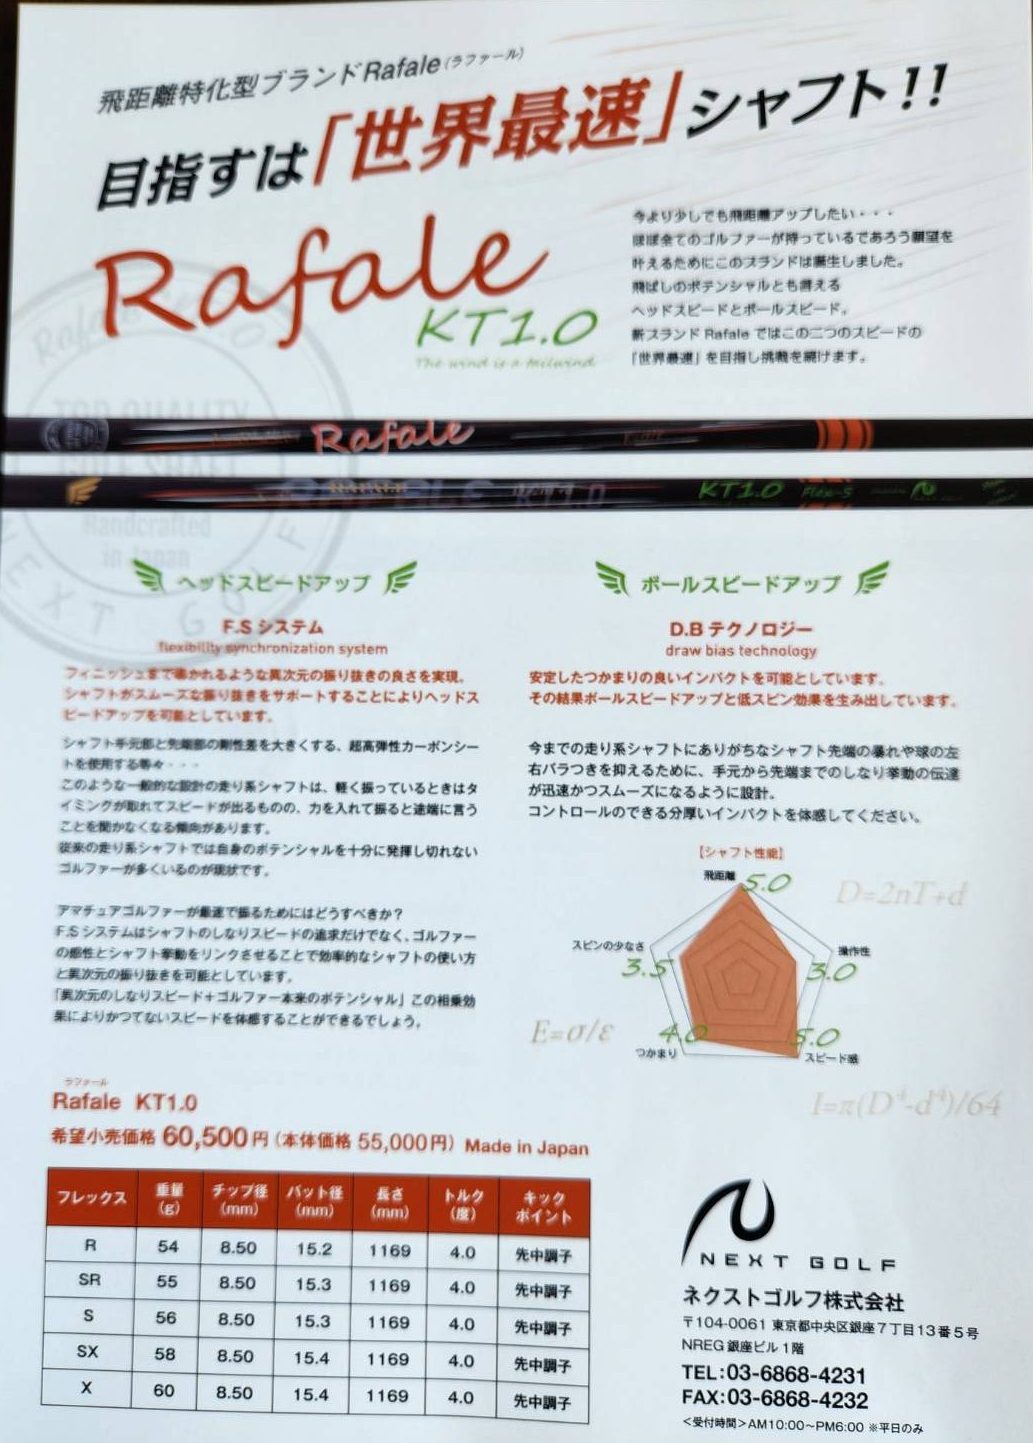 飛距離特化型ブランドRafale(ラファール)
目指すは「世界最速」シャフト!!
Rafale
KT1.0
The wind is a tailwind
今より少しでも飛距離アップしたい・・・
ほぼ全てのゴルファーが持っているであろう願望を
叶えるためにこのブランドは誕生しました。
飛ばしのポテンシャルとも言える
ヘッドスピードとボールスピード。
新ブランド Rafale ではこの二つのスピードの
「世界最速」を目指し挑戦を続けます。
TOP QUALITY
GOLF SHAFT
Handcrafted
in Japan
NEXT GOLF
Rafale
RAFALE KT1.0
KT1.0 Flex-S
ヘッドスピードアップ
F.S システム
flexibility synchronization system
フィニッシュまで導かれるような異次元の振り抜きの良さを実現。
シャフトがスムーズな振り抜きをサポートすることによりヘッドス
ピードアップを可能としています。
シャフト手元部と先端部の剛性差を大きくする、超高弾性カーボンシー
トを使用する等々・・・
このような一般的な設計の走り系シャフトは、軽く振っているときはタ
イミングが取れてスピードが出るものの、力を入れて振ると途端に言う
ことを聞かなくなる傾向があります。
従来の走り系シャフトでは自身のポテンシャルを十分に発揮し切れない
ゴルファーが多くいるのが現状です。
アマチュアゴルファーが最速で振るためにはどうすべきか?
F.S システムはシャフトのしなりスピードの追求だけでなく、ゴルファー
の個性とシャフト挙動をリンクさせることで効率的なシャフトの使い方
と異次元の振り抜きを可能としています。
「異次元のしなりスピード+ゴルファー本来のポテンシャル」この相乗効
果によりかつてないスピードを体感することができるでしょう。
ボールスピードアップ
D.B テクノロジー
draw bias technology
安定したつかまりの良いインパクトを可能としています。
その結果ボールスピードアップと低スピン効果を生み出しています。
今までの走り系シャフトにありがちなシャフト先端の暴れや球の左
右バラつきを抑えるために、手元から先端までのしなり挙動の伝達
が迅速かつスムーズになるように設計。
コントロールのできる分厚いインパクトを体感してください。
【シャフト性能】
飛距離 5.0
D=2nT+d
スピンの少なさ 3.5
操作性 3.0
E=σ/ε
つかまり 4.0
スピード感 5.0
I=π(D⁴-d⁴)/64
ラファール
Rafale KT1.0
希望小売価格 60,500円(本体価格 55,000円) Made in Japan
フレックス 重量(g) チップ径(mm) バット径(mm) 長さ(mm) トルク(度) キックポイント
R 54 8.50 15.2 1169 4.0 先中調子
SR 55 8.50 15.3 1169 4.0 先中調子
S 56 8.50 15.3 1169 4.0 先中調子
SX 58 8.50 15.4 1169 4.0 先中調子
X 60 8.50 15.4 1169 4.0 先中調子
NEXT GOLF
ネクストゴルフ株式会社
〒104-0061 東京都中央区銀座7丁目13番5号
NREG 銀座ビル 1階
TEL:03-6868-4231
FAX:03-6868-4232
<受付時間>AM10:00~PM6:00 ※平日のみ